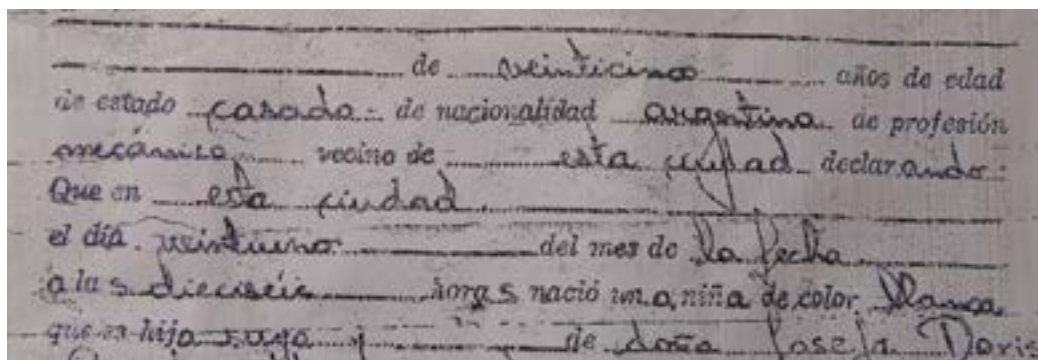 de veinticinco años de edad
de estado casado - de nacionalidad argentina de profesión
mecánico vecino de esta ciudad declarando:
Que en esta ciudad
el día veintiuno del mes de la fecha
a las dieciséis horas nació una niña de color blanca
que es hija suya y de doña Josefa Doris